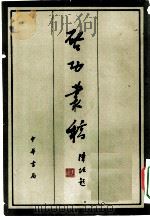 启功叢稿
陳垣題
中華書局